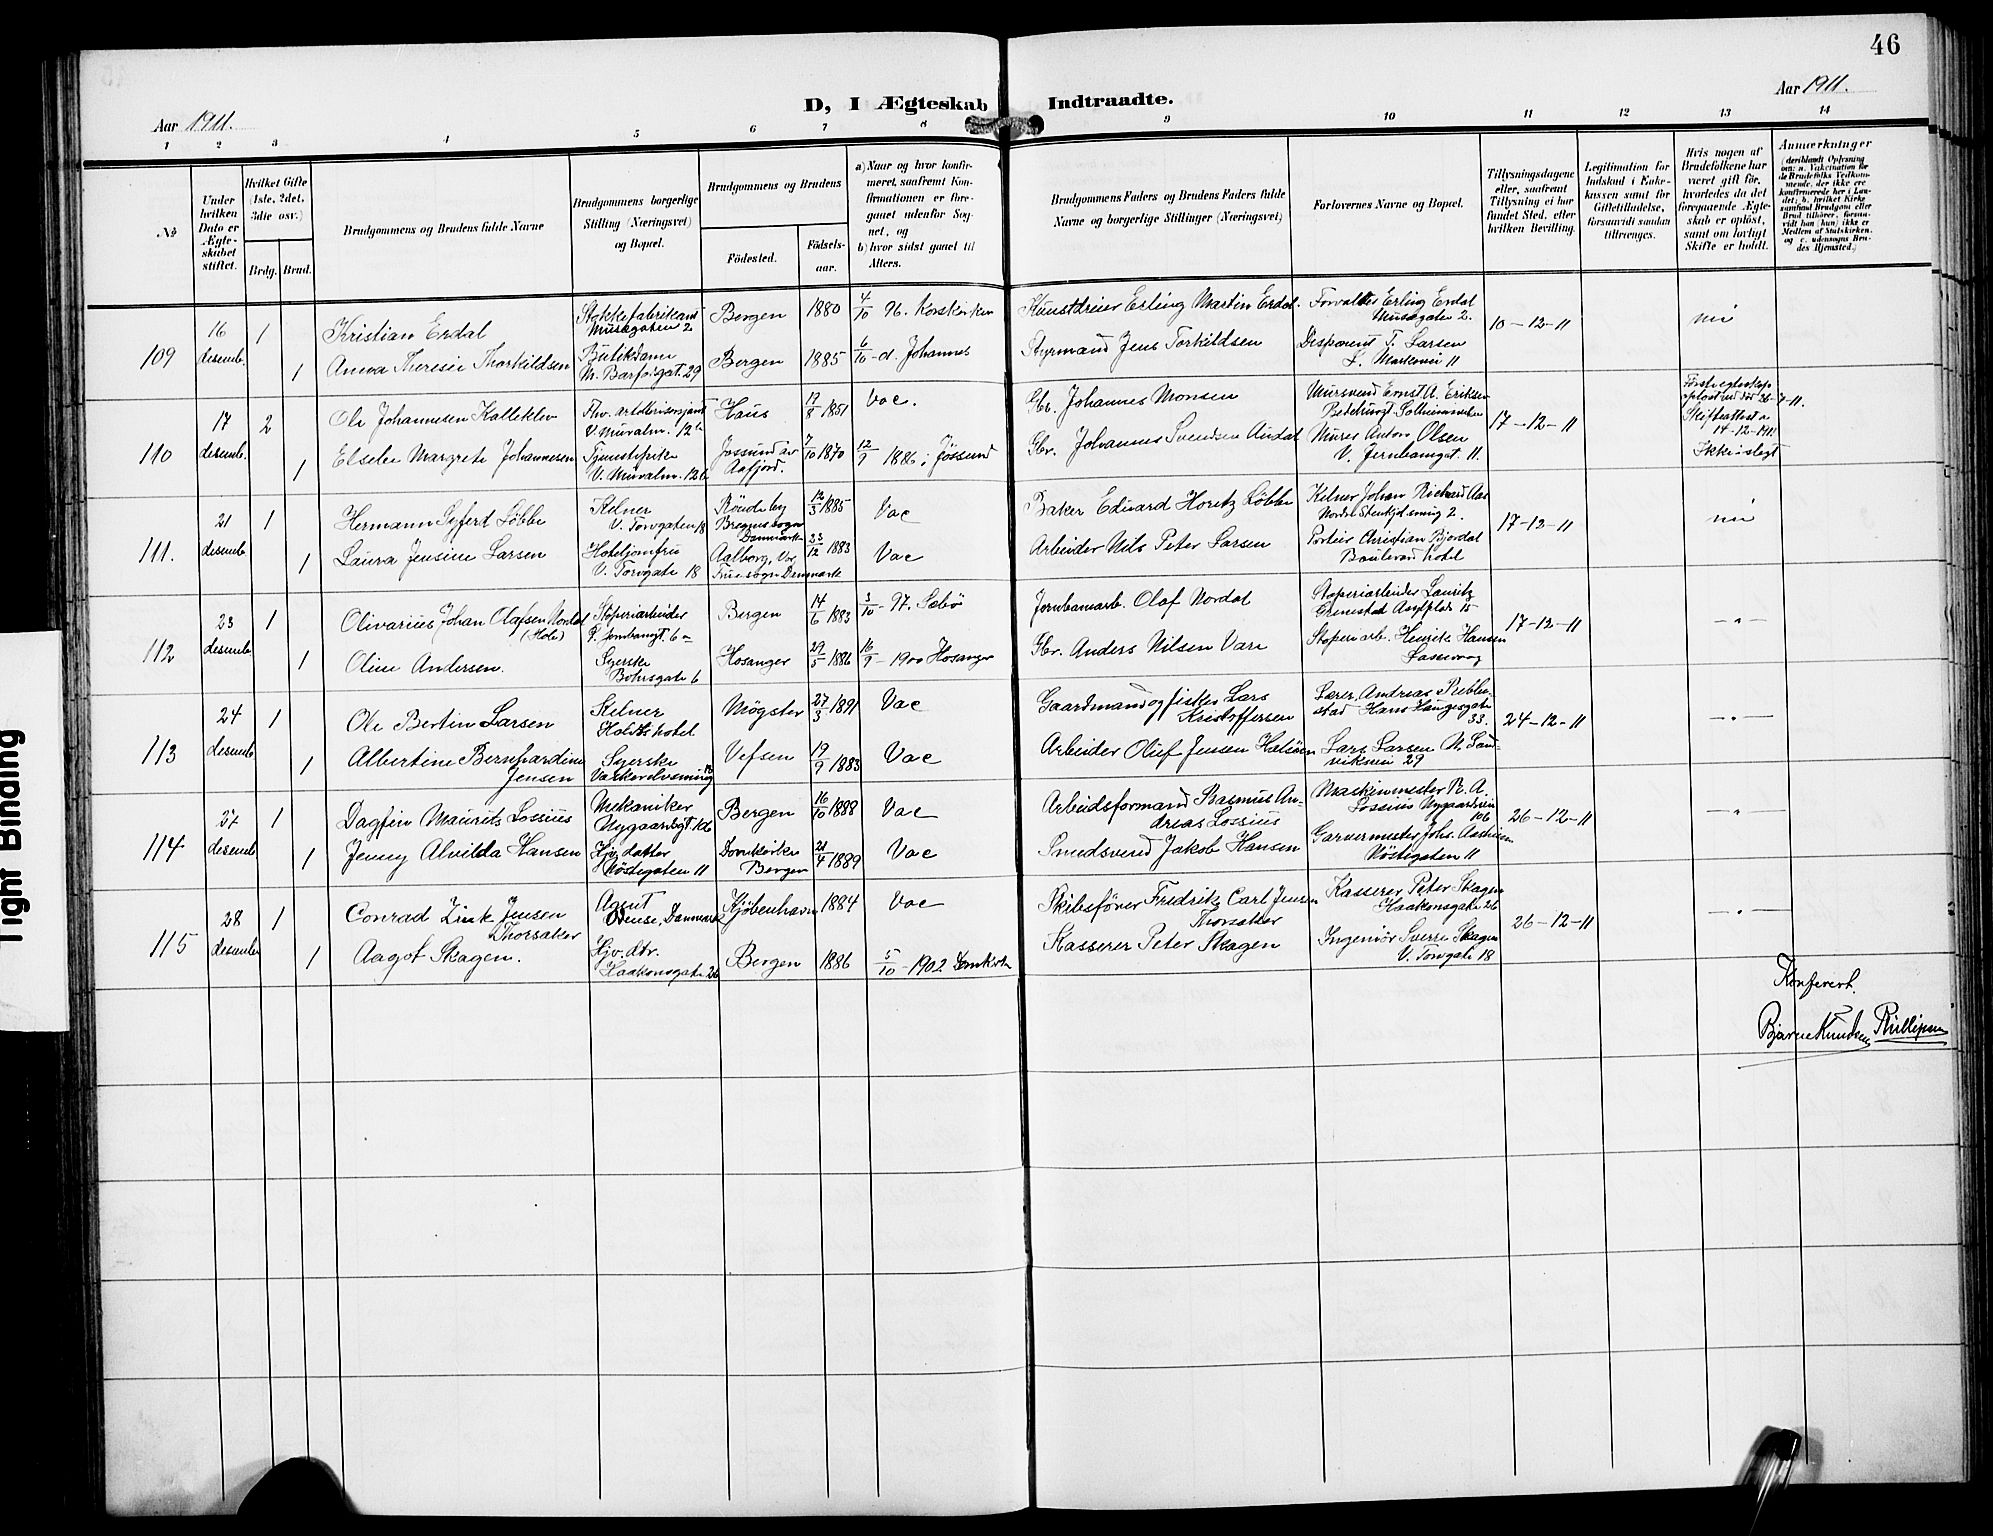 46
D, I Ægteskab Indtraadte.
Aar 1911.
Aar 1911.
1 2 3 4 5 6 7 8 9 10 11 12 13 14
No
Under hvilken Dato er Ægteskabet stiftet.
Hvilket Gifte (1ste, 2det, 3die osv.)
Brdg. Brud.
Brudgommens og Brudens fulde Navne
Brudgommens borgerlige Stilling (Næringsvei) og Bopæl.
Brudgommens og Brudens
Födested. Födselsaar.
a) Naar og hvor konfirmeret, saafremt Konfirmationen er foregaaet udenfor Sognet, og
b) hvor sidst gaaet til Alters.
Brudgommens Faders og Brudens Faders fulde Navne og borgerlige Stillinger (Næringsvei)
Forlovernes Navne og Bopæl.
Tillysningsdagene eller, saafremt Tillysning ei har fundet Sted, efter hvilken Bevilling.
Legitimation for Indskud i Enkekassen samt for Giftetilladelse, forsaavidt saadan tiltrænges.
Hvis nogen af Brudefolkene har været gift för, hvorledes da det foregaaende Ægteskab er oplöst, samt om lovligt Skifte er holdt.
Anmærkninger
109 16 desemb. 1 Kristian Erdal Stokkefabrikant Musægaten 2 Bergen 1880 4/10 96. Korskirken Kunstdreier Erling Martin Erdal Forvalter Erling Erdal Musægaten 2. 10-12-11 nei
1 Anna Theresie Thorkildsen Butikdame M. Barfotsgt. 29 Bergen 1885 6/10 - d. Johannes Styrmand Jens Torkildsen Disponent T. Larsen L. Markevei 11
110 17 desemb. 2 Ole Johannesen Kalleklev Fhv. artillerisersjant V. Muralm. 12b Haus 17/8 1851 Vac. Gbr. Johannes Monsen Mursvend Ernst A. Eriksen Solheimsviken 17-12-11 Förste egteskap oplöst ved död 26-7-11. Skifteattest a. 14-12-1911
1 Elsebe Margrete Johannesen Tjenestepike V. Muralm. 12b Jossund av Aafjord. 7/10 1870 12/9 1886 i Jössund Gbr. Johannes Svendsen Audal Murer Anton Olsen V. Jernbanegt. 11. Ikke i slegt
111. 21 desemb. 1 Hermann Syfert Löbbe Kelner V. Torvgaten 18 Rönde by Bregnet sogn Danmark 12/3 1885 Vac Baker Eduard Horitz Löbbe Kelner Johan Richard Aas 17-12-11 nei
1 Laura Jensine Larsen Hoteljomfru V. Torvgate 18 Aalborg, Vor Frue sogn Danmark 23/12 1883 Vac Arbeider Nils Peter Larsen Portier Christian Bjordal Boulevard hotel
112 23 desemb. 1 Olivarius Johan Olafsen Nordal (Hole) Stöperiarbeider Bergen 14/6 1883 3/10 - 97. Sæbö Jernbanearb. Olaf Nordal Stöperiarbeider Lauritz Grimstad Asylplads 15 17-12-11 - " -
1 Oline Andersen. Syerske Bohrsgate 6 Hosanger 29/5 1886 16/9 - 1900 Hosanger Gbr. Anders Nilsen Vare Stöperiarb. Henrik Hansen Laksevaag
113 24 desemb. 1 Ole Bertin Larsen Kelner Holdts hotel Mögster 27/3 1891 Vac Gaardmand og fisker Lars Kristoffersen Lærer Andreas Prebbestad Hans Haugesgate 33. 24-12-11 - " -
1 Albertine Bernhardine Jensen Syerske Vaskerelvsmug 13 Vefsen 19/9 1883 Vac Arbeider Oluf Jensen Halsöen Lars Larsen N. Sandviksvei 29
114 27 desemb. 1 Dagfin Maurits Lossius Mekaniker Nygaardsgt. 106 Bergen 16/10 1888 Vac Arbeidsformand Rasmus Andreas Lossius Maskinmester R. A. Lossius Nygaardsveien 106 26-12-11 - " -
1 Jenny Alvilda Hansen Hjv. datter Nöstegaten 11 Domkirke Bergen 21/4 1889 Vac Smedsvend Jakob Hansen Garvermester Johs. Nöstegaten 11
115 28 desember 1 Conrad Zink Jensen Thorsaker Agent Odense, Danmark Kjöbenhavn 1884 Vac Skibsförer Fredrik Carl Jensen Thorsaker Kasserer Peter Skagen Haakonsgate 26 26-12-11 - " -
1 Aagot Skagen. Hjv. dtr. Haakonsgate 26 Bergen 1886 5/10 - 1902 Domkirke Kasserer Peter Skagen Ingeniör Sverre Skagen V. Torvgate 18
Konferert.
Bjarne Knudsen Phillipsen
Tight Binding